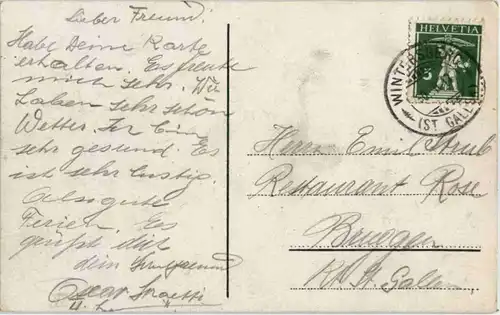 Lieber Freund.
Habe Deine Karte
erhalten. Es freute
mich sehr. Wir
haben sehr schön
Wetter. Ich bin
sehr gesund. Es
ist sehr lustig.
Also gute
Ferien. Es
grüßt dich
dein
Oscar
HELVETIA
5
WINTERS
(ST. GALLEN)
Herrn Emil Straub
Restaurant Rose
Bruggen
Kt. St. Gallen